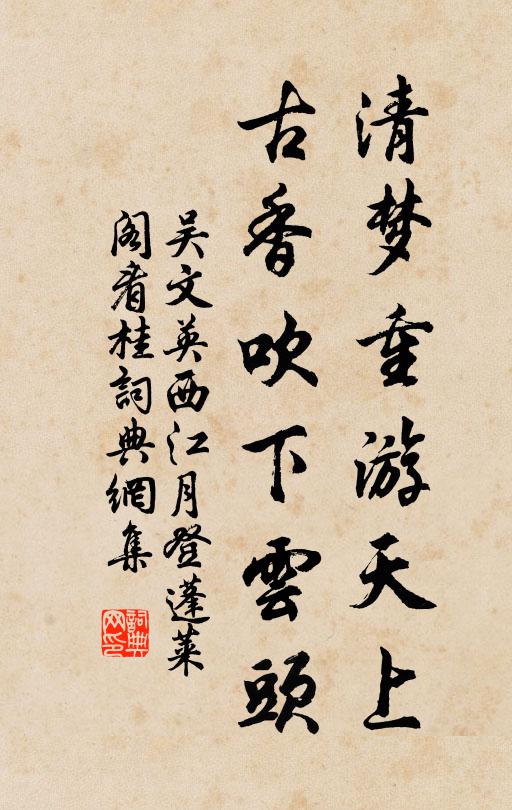 清梦重游天上
古香吹下雲頭
吴文英西江月登蓬莱
阁看桂詞典網集
詞典网印